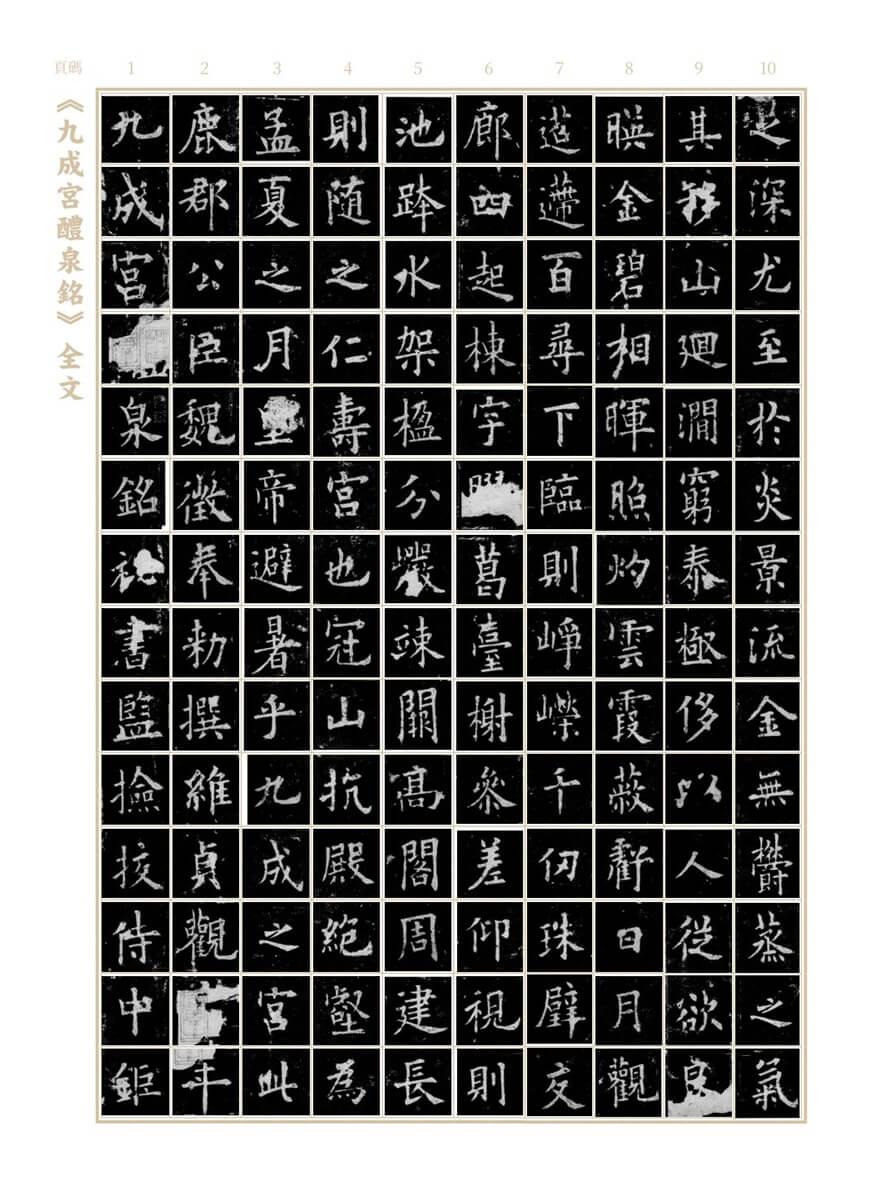 頁碼 1 2 3 4 5 6 7 8 9 10
《九成宮醴泉銘》全文
九成宮泉銘祕書監撿挍侍中鉅
鹿郡公臣魏徵奉勅撰維貞觀年
孟夏之月皇帝避暑乎九成之宮此
則随之仁壽宮也冠山抗殿絕壑為
池跨水架楹分巖竦闕高閣周建長
廊四起棟宇葛臺榭參差仰視則
迢遰百尋下臨則崢嶸千仞珠璧交
暎金碧相暉照灼雲霞蔽虧日月觀
其移山迴澗窮泰極侈以人從欲良
足深尤至於炎景流金無鬱蒸之氣